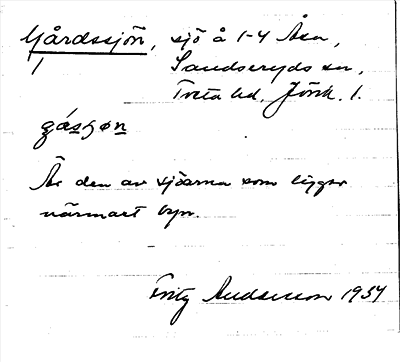 Gårdssjön, sjö å 1-4 Åsen,
1 Sandseryds sn,
Tveta hd, Jönk. l.
gásʃøn
Är den av sjöarna som ligger
närmast byn.
Fritz Andersson 1937